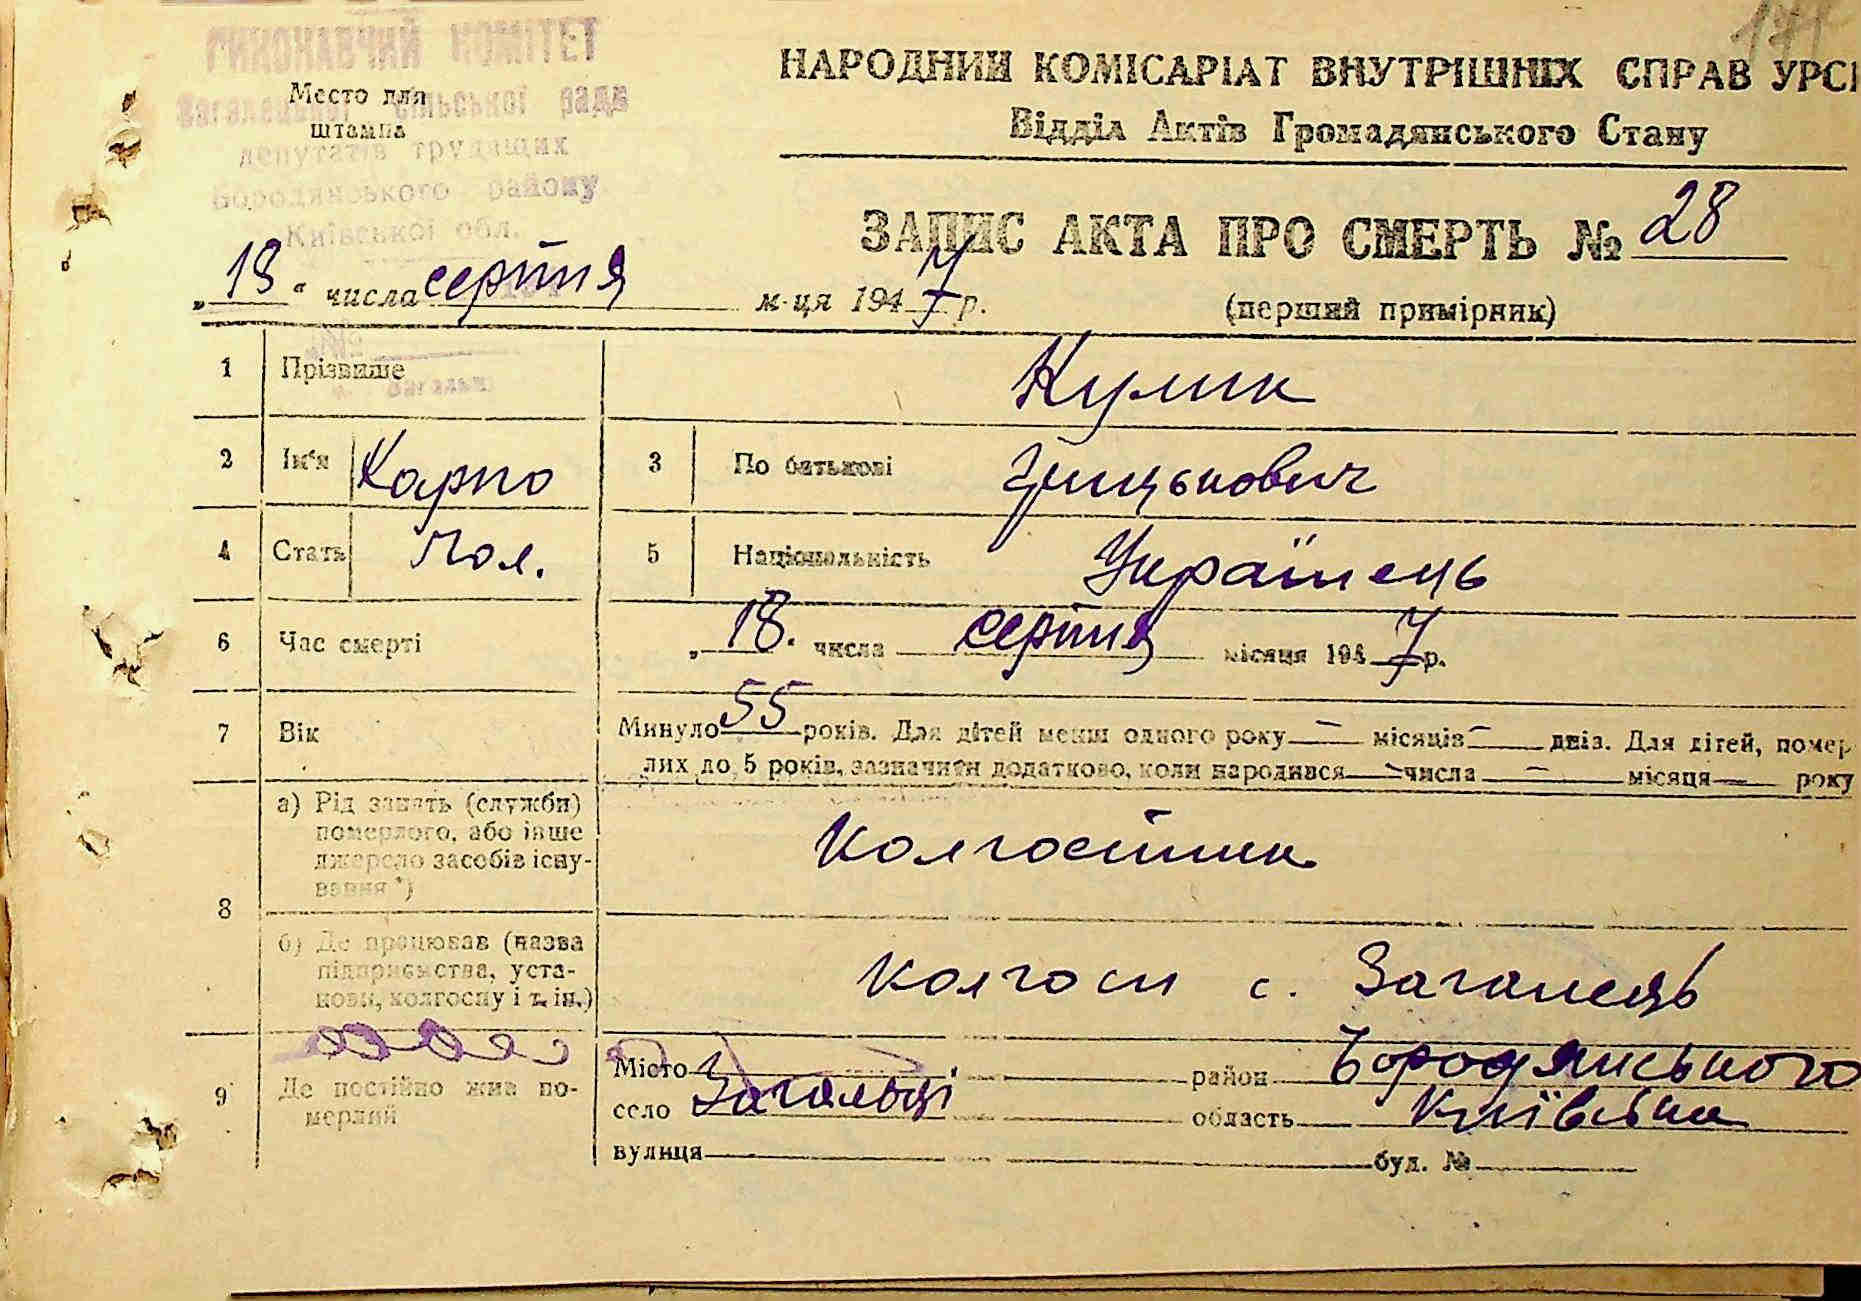 ВИКОНАВЧИЙ КОМІТЕТ
Загальської сільської ради
депутатів трудящих
Бородянського району
Київської обл.
Место для
штампа
НАРОДНИЙ КОМІСАРІАТ ВНУТРІШНІХ СПРАВ УРСР
Відділ Актів Громадянського Стану
ЗАПИС АКТА ПРО СМЕРТЬ № 28
„18“ числа серпня м-ця 1947 р.
(перший примірник)
1 Прізвище Кулик
2 Ім'я Карпо 3 По батькові Грицькович
4 Стать Чол. 5 Національність Українець
6 Час смерті „18" числа серпня місяця 1947 р.
7 Вік Минуло 55 років. Для дітей менш одного року — місяців — днів. Для дітей, помер-
лих до 5 років, зазначити додатково, коли народився — числа — місяця — року
8 а) Рід занять (служби)
померлого, або інше
джерело засобів існу-
вання*)
Колгоспник
б) Де працював (назва
підприємства, уста-
нови, колгоспу і т. ін.)
Колгосп с. Загалець
9 Де постійно жив по-
мерлий
Місто район Бородянського
село Загальці область Київська
вулиця буд. №